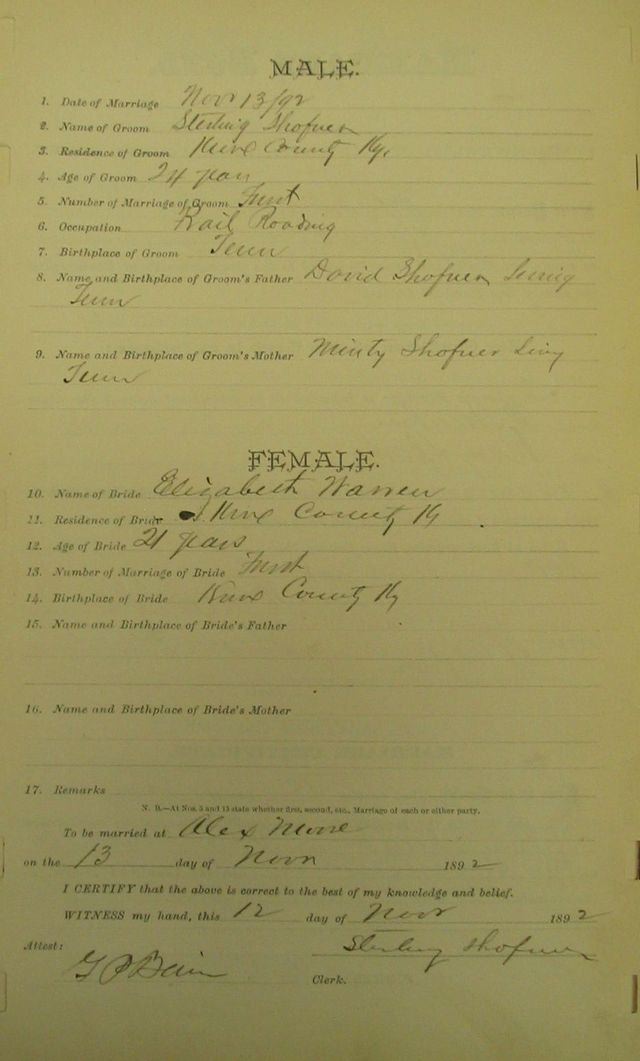 MALE.
1. Date of Marriage Novr 13/92
2. Name of Groom Sterling Shofner
3. Residence of Groom Knox County Ky.
4. Age of Groom 24 years
5. Number of Marriage of Groom First
6. Occupation Rail Roading
7. Birthplace of Groom Tenn
8. Name and Birthplace of Groom's Father David Shofner
Tenn
9. Name and Birthplace of Groom's Mother Minty Shofner
Tenn
FEMALE.
10. Name of Bride Elizabeth Warren
11. Residence of Bride Knox County Ky
12. Age of Bride 21 years
13. Number of Marriage of Bride First
14. Birthplace of Bride Knox County Ky
15. Name and Birthplace of Bride's Father
16. Name and Birthplace of Bride's Mother
17. Remarks
N. B.—At Nos. 5 and 13 state whether first, second, etc., Marriage of each or either party.
To be married at Alex
on the 13 day of Novr 1892
I CERTIFY that the above is correct to the best of my knowledge and belief.
WITNESS my hand, this 12 day of Novr 1892
Attest: Sterling Shofner
Clerk.